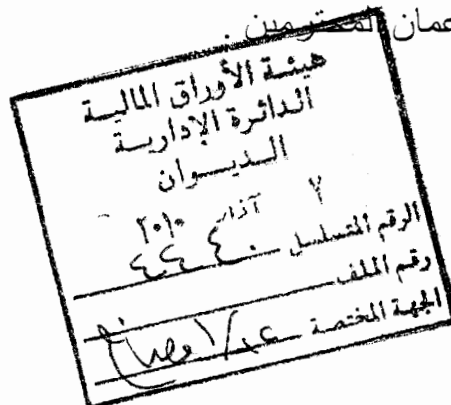 عمان المحترمين .
هيئة الأوراق المالية
الدائرة الإدارية
الديوان
٧ آذار ٢٠١٠
الرقم المتسلسل
رقم الملف
الجهة المختصة